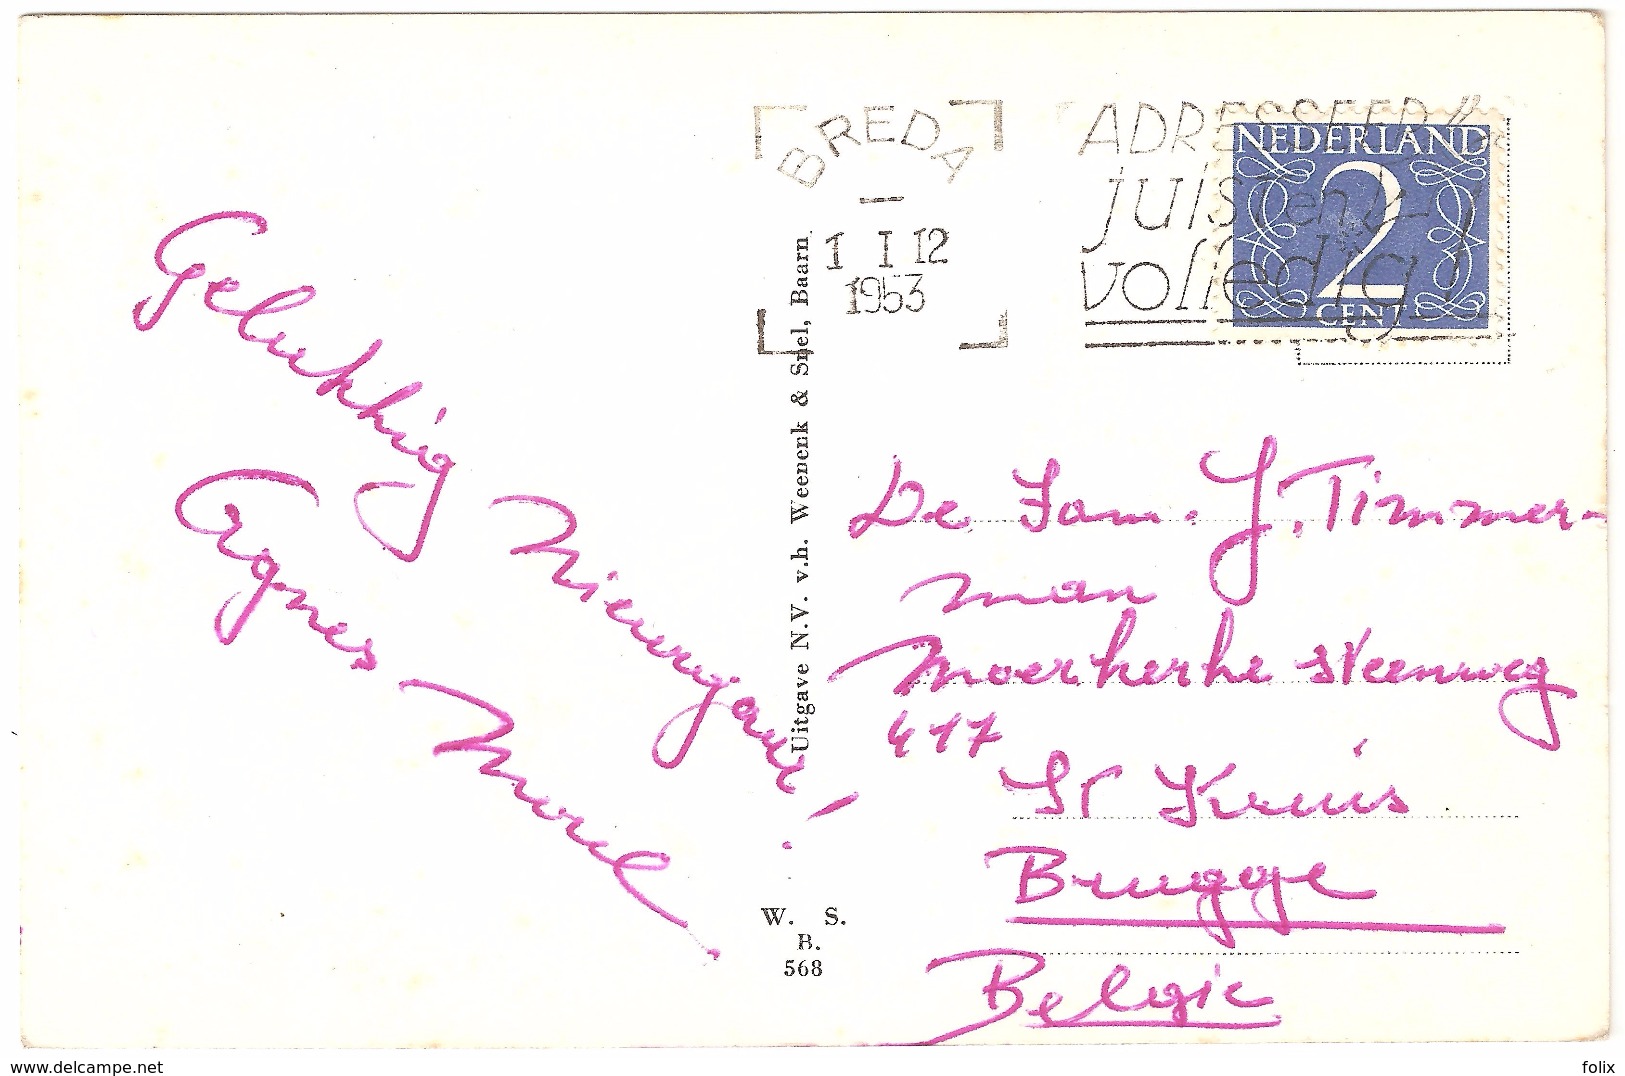 BREDA
1 I 12
1953
ADRESSEER
juist en
volledig!
NEDERLAND
2
CENT
Gelukkig Nieuwjaar!
Agnes Morel
Uitgave N.V. v.h. Weenenk & Snel, Baarn
W. S.
B.
568
De Fam. J. Timmer-
man
Moerkerke steenweg
417
St Kruis
Brugge
Belgie
www.delcampe.net
folix